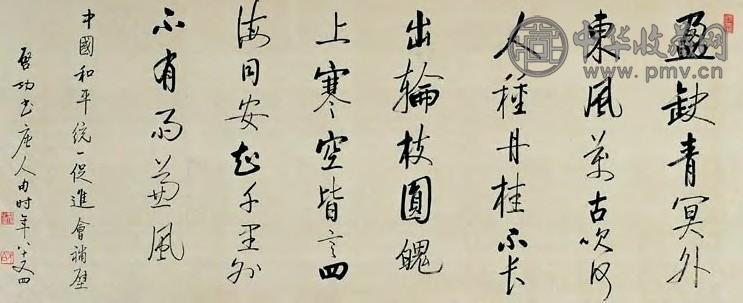 盈缺青冥外
東風萬古吹何
人種丹桂不長
出輪枝圓魄
上寒空皆言四
海同安知千里外
不有雨兼風
中國和平統一促進會補壁
啓功书唐人句时年八十又四
中华收藏网
www.pmv.cn